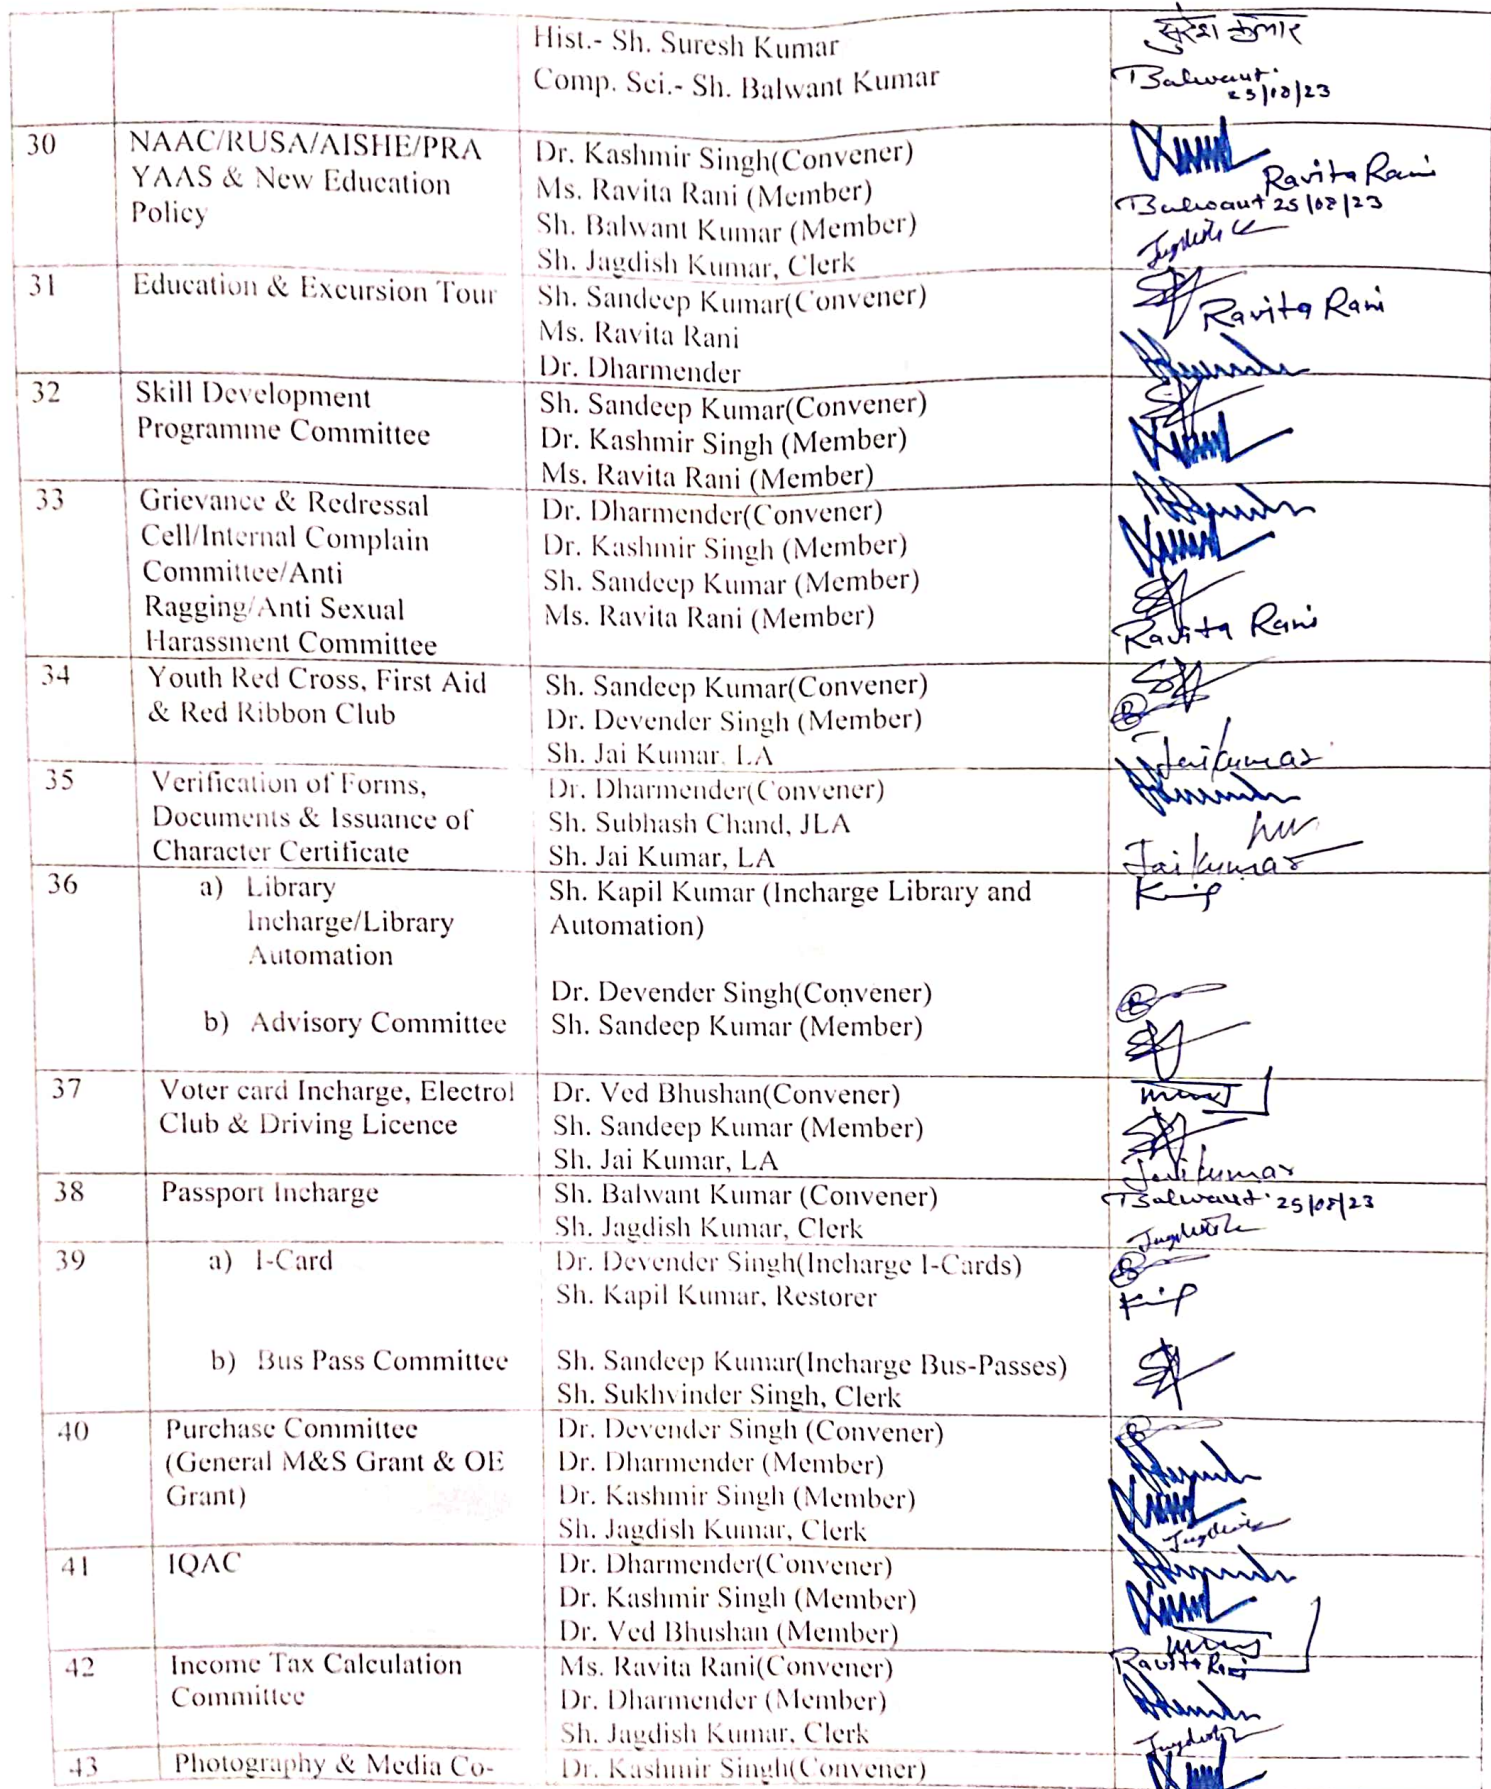 Hist.- Sh. Suresh Kumar
सुरेश कुमार
Comp. Sci.- Sh. Balwant Kumar
Balwant
25/08/23
30
NAAC/RUSA/AISHE/PRA
YAAS & New Education
Policy
Dr. Kashmir Singh(Convener)
Ms. Ravita Rani (Member)
Sh. Balwant Kumar (Member)
Sh. Jagdish Kumar, Clerk
Ravita Rani
Balwant 25/08/23
31
Education & Excursion Tour
Sh. Sandeep Kumar(Convener)
Ms. Ravita Rani
Dr. Dharmender
Ravita Rani
32
Skill Development
Programme Committee
Sh. Sandeep Kumar(Convener)
Dr. Kashmir Singh (Member)
Ms. Ravita Rani (Member)
33
Grievance & Redressal
Cell/Internal Complain
Committee/Anti
Ragging/Anti Sexual
Harassment Committee
Dr. Dharmender(Convener)
Dr. Kashmir Singh (Member)
Sh. Sandeep Kumar (Member)
Ms. Ravita Rani (Member)
Ravita Rani
34
Youth Red Cross, First Aid
& Red Ribbon Club
Sh. Sandeep Kumar(Convener)
Dr. Devender Singh (Member)
Sh. Jai Kumar, LA
Jai kumar
35
Verification of Forms,
Documents & Issuance of
Character Certificate
Dr. Dharmender(Convener)
Sh. Subhash Chand, JLA
Sh. Jai Kumar, LA
Jai kumar
36
a) Library
Incharge/Library
Automation
b) Advisory Committee
Sh. Kapil Kumar (Incharge Library and
Automation)
Dr. Devender Singh(Convener)
Sh. Sandeep Kumar (Member)
37
Voter card Incharge, Electrol
Club & Driving Licence
Dr. Ved Bhushan(Convener)
Sh. Sandeep Kumar (Member)
Sh. Jai Kumar, LA
Jai kumar
38
Passport Incharge
Sh. Balwant Kumar (Convener)
Sh. Jagdish Kumar, Clerk
Balwant 25/08/23
39
a) I-Card
b) Bus Pass Committee
Dr. Devender Singh(Incharge I-Cards)
Sh. Kapil Kumar, Restorer
Sh. Sandeep Kumar(Incharge Bus-Passes)
Sh. Sukhvinder Singh, Clerk
40
Purchase Committee
(General M&S Grant & OE
Grant)
Dr. Devender Singh (Convener)
Dr. Dharmender (Member)
Dr. Kashmir Singh (Member)
Sh. Jagdish Kumar, Clerk
41
IQAC
Dr. Dharmender(Convener)
Dr. Kashmir Singh (Member)
Dr. Ved Bhushan (Member)
42
Income Tax Calculation
Committee
Ms. Ravita Rani(Convener)
Dr. Dharmender (Member)
Sh. Jagdish Kumar, Clerk
Ravita Rani
43
Photography & Media Co-
Dr. Kashmir Singh(Convener)